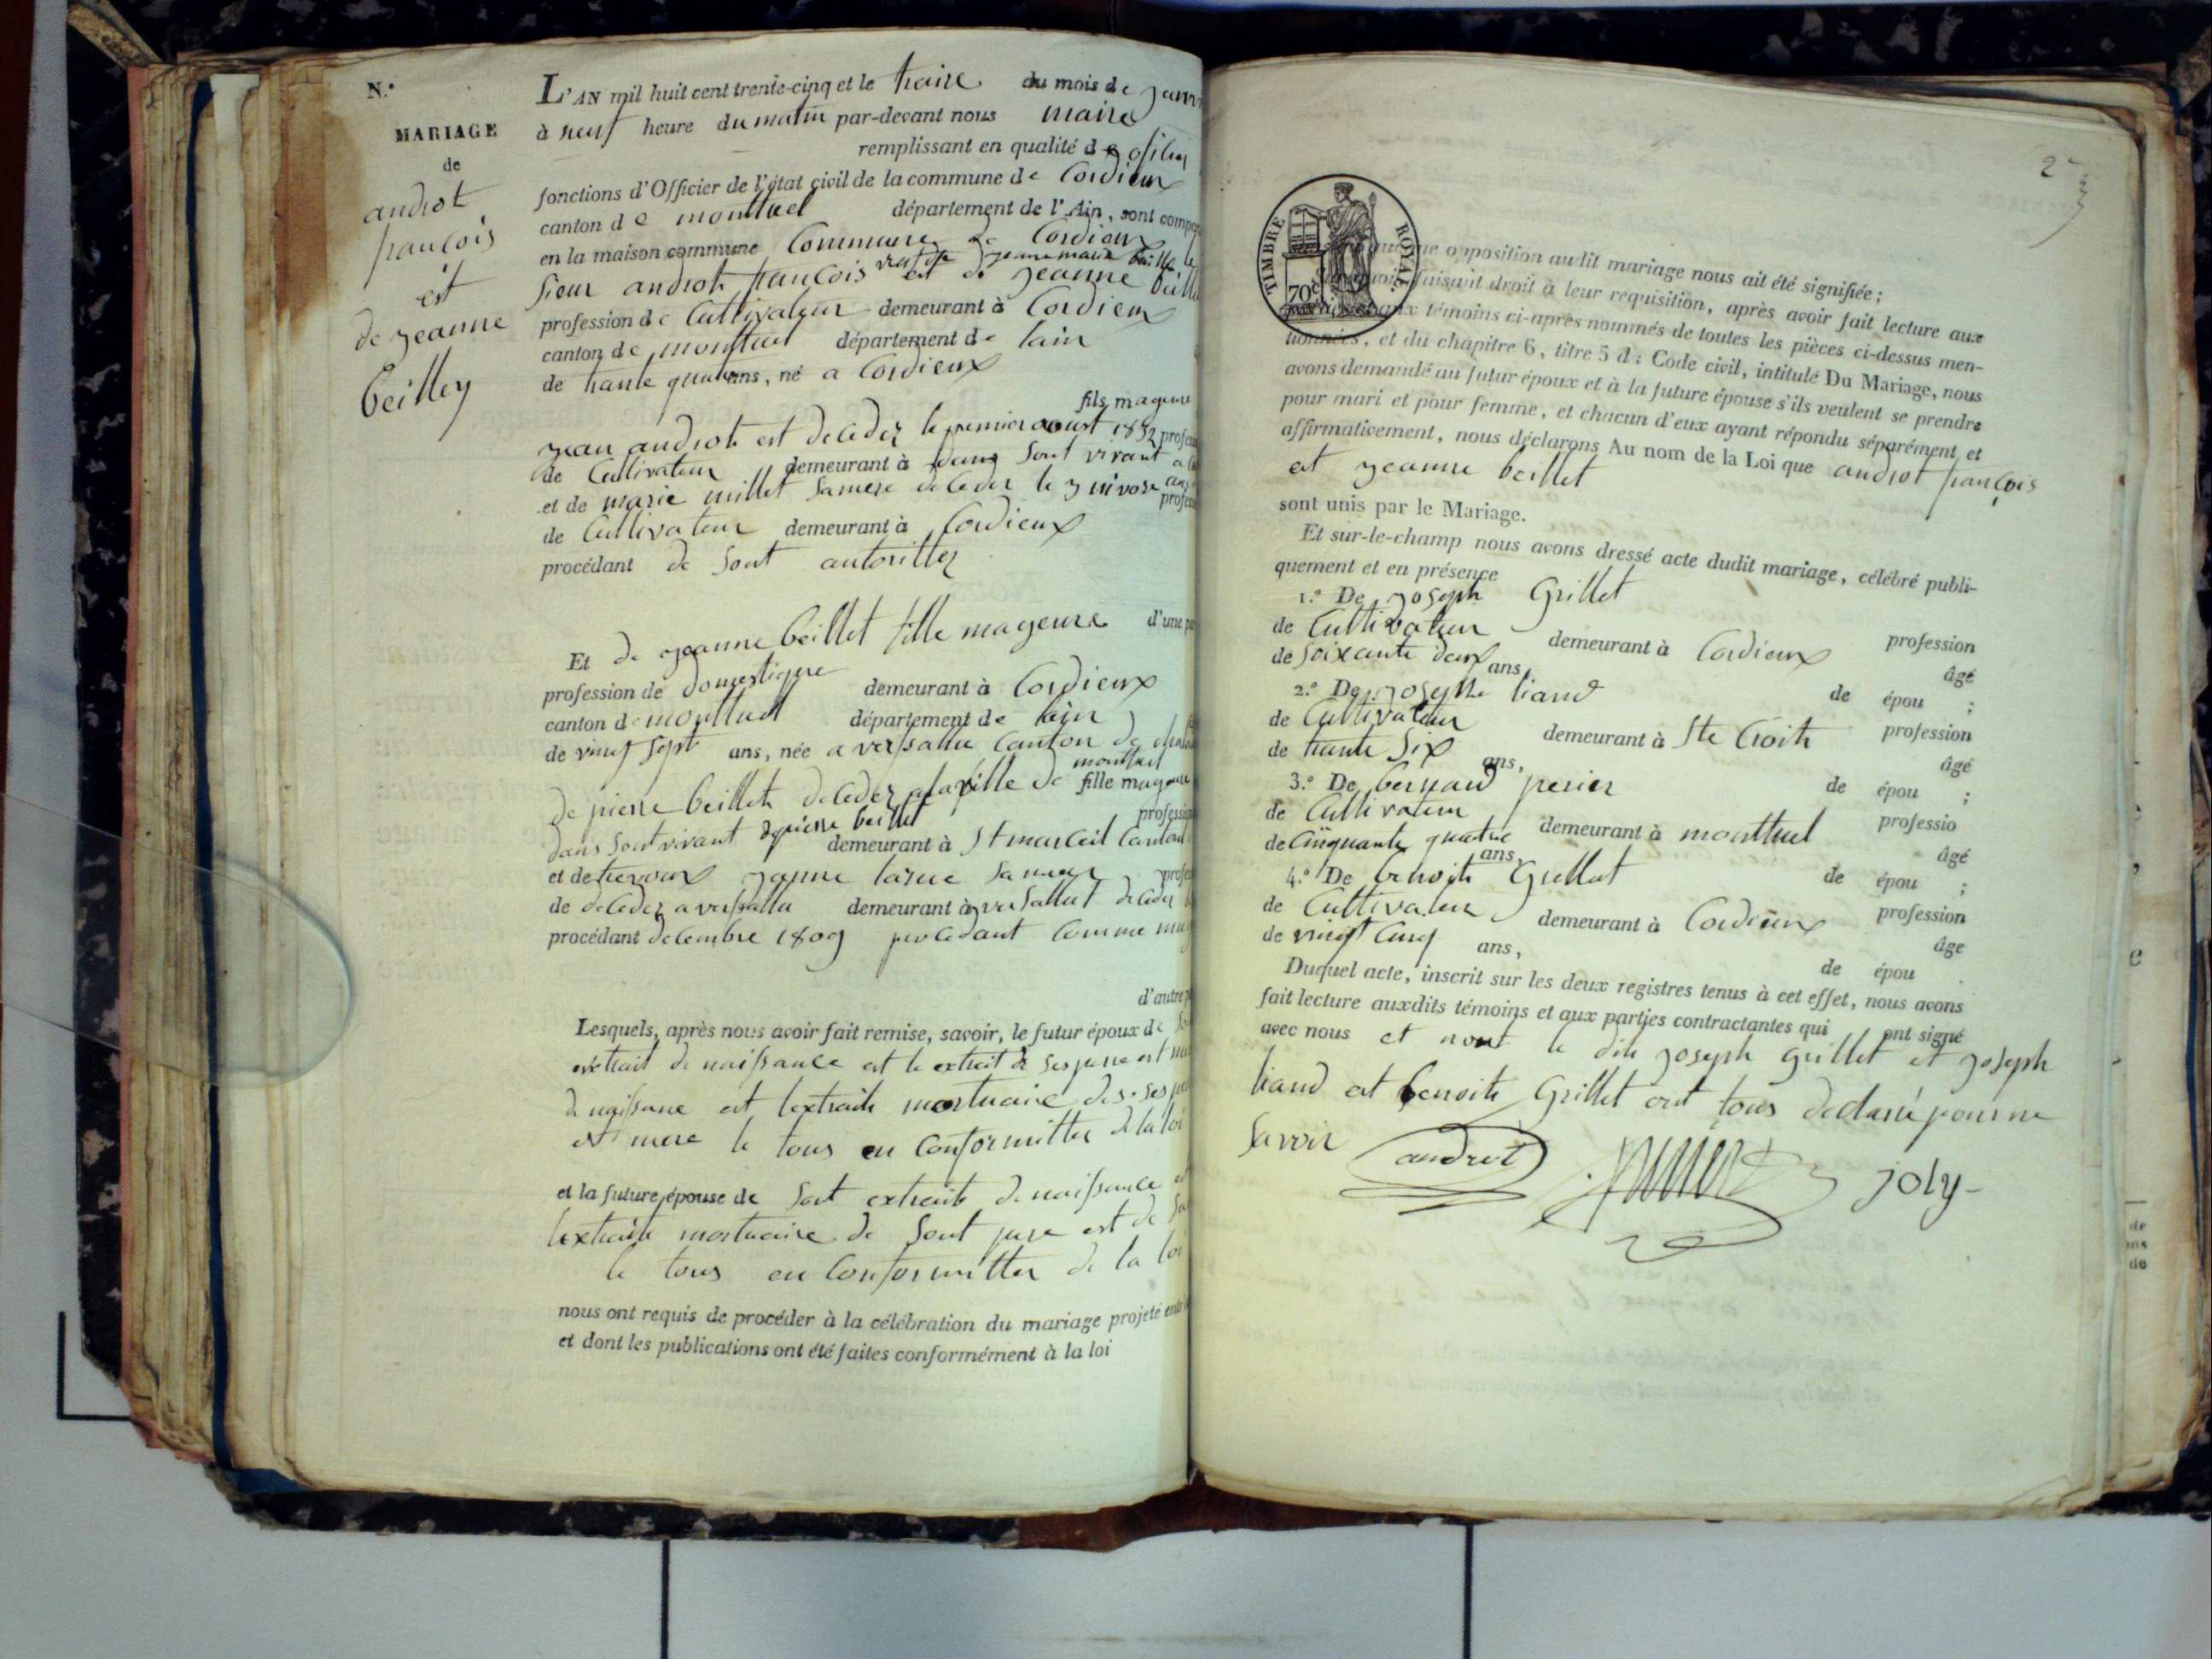 N.°
MARIAGE
de
androt
francois
est
de jeanne
beilley
L'AN mil huit cent trente-cinq et le traize du mois de janv
à neuf heure du matin par-devant nous maire
remplissant en qualité de
fonctions d'Officier de l'état civil de la commune de Cordieux
canton de montluel département de l'Ain, sont comp
en la maison commune Commune de Cordieux
sieur androt francois est de jeanne
profession de Cultivateur demeurant à Cordieux
canton de montluel département de lain
de trante quatre ans, né a Cordieux
fils mageure
jean androt est deceder le premier aoust 1832 profes
de Cultivateur demeurant à dans sont vivant a
et de marie millet sa mere deceder le 3 nivose an
profes
de Cultivateur demeurant à Cordieux
procédant de sont autoritter
Et de jeanne beillet fille mageure d'une p
profession de domestique demeurant à Cordieux
canton de montluel département de lain
de vingt sept ans, née a versallu Canton de
montluel
de pierre beillet deceder a la ville de fille mageure
professi
dans sont vivant de pierre beillet demeurant à St marceil Canton
et de trevoux janne sa mere profes
de deceder a versallu demeurant à versallut deceder
procédant decembre 1809 procedant Comme
d'autre p
Lesquels, après nous avoir fait remise, savoir, le futur époux de
extrait de naissance est le extrait de ses pere est
de naissance est lextraite mortuaire des ses
est mere le tous en Conformitter de la loi
et la future épouse de sont extraite de naissance
lextraite mortuaire de sont pere est de sa
le tous en Conformitter de la loi
nous ont requis de procéder à la célébration du mariage projeté ent
et dont les publications ont été faites conformément à la loi
2
TIMBRE ROYAL
70c
ne opposition audit mariage nous ait été signifiée;
faisant droit à leur réquisition, après avoir fait lecture aux
aux témoins ci-après nommés de toutes les pièces ci-dessus men-
tionnées, et du chapitre 6, titre 5 du Code civil, intitulé Du Mariage, nous
avons demandé au futur époux et à la future épouse s'ils veulent se prendre
pour mari et pour femme, et chacun d'eux ayant répondu séparément et
affirmativement, nous déclarons Au nom de la Loi que androt francois
et jeanne beillet
sont unis par le Mariage.
Et sur-le-champ nous avons dressé acte dudit mariage, célébré publi-
quement et en présence
1.° De joseph Grillet profession
de Cultivateur demeurant à Cordieux âgé
de soixante deux ans, de épou ;
2.° De josephe liand profession
de Cultivateur demeurant à Ste Croix âgé
de trante six ans, de épou ;
3.° De bernard perier professio
de Cultivateur demeurant à montluel âgé
de Cinquante quatre ans, de épou ;
4.° De benoite Grillet profession
de Cultivateur demeurant à Cordieux âge
de vingt Cinq ans, de épou .
Duquel acte, inscrit sur les deux registres tenus à cet effet, nous avons
fait lecture auxdits témoins et aux parties contractantes qui ont signé
avec nous et nont le dit joseph grillet et joseph
liand et benoite Grillet ont tous declaré pour ne
savoir
androt
joly
e
de
de